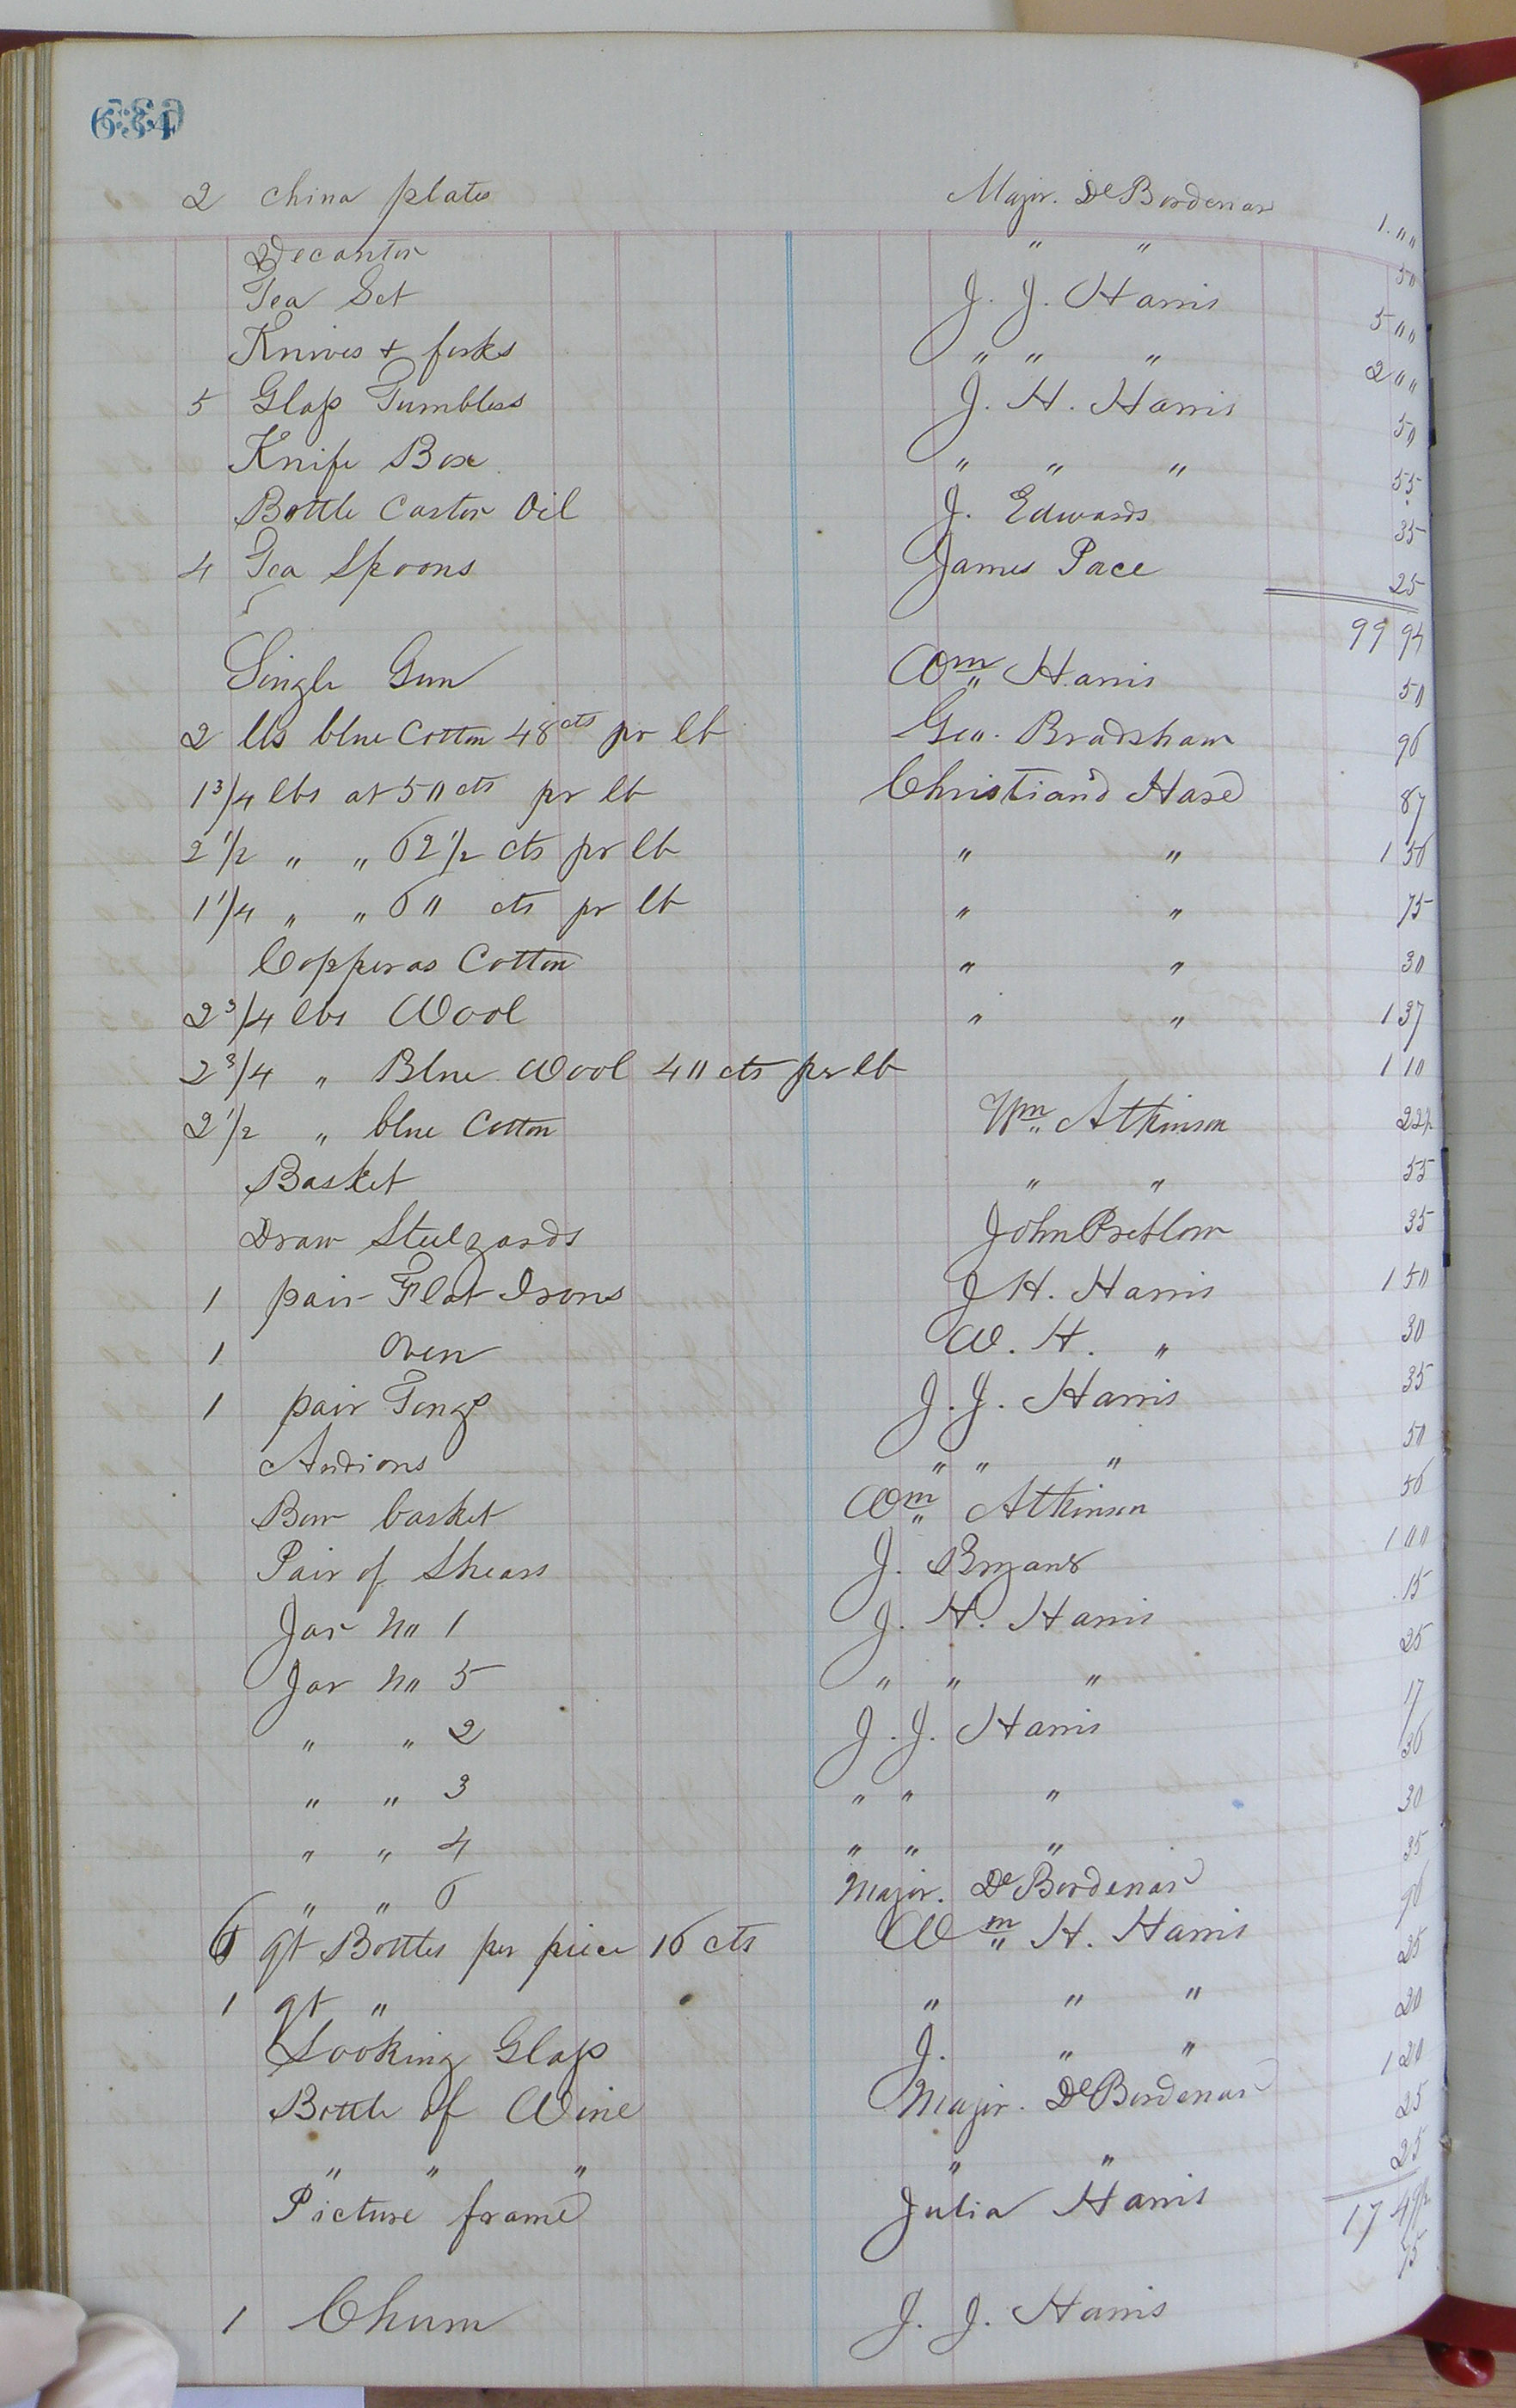 634
2 China plates Major. De Bordenav 1.00
Decanter " " 50
Tea Set J. J. Harris 500
Knives + forks " " " 200
5 Glass Tumbless J. H. Harris 50
Knife Box " " " 55
Bottle Caster Oil J. Edwards 35
4 Tea Spoons James Pace 25
99 94
Single Gun Wm Harris 50
2 lbs blue Cotton 48 cts pr lb Geo. Bradshaw 96
1 3/4 lbs at 50 cts pr lb Christian'd Hase 87
2 1/2 " " 62 1/2 cts pr lb " " 1 56
1 1/4 " " 60 cts pr lb " " 75
Copperas Cotton " " 30
2 3/4 lbs Wool " " 1 37
2 3/4 " Blue Wool 40 cts per lb 1 10
2 1/2 " blue Cotton Wm Atkinson 22 1/2
Basket " " 55
Draw Steelyards John Pretlow 35
1 pair Flat Irons J H. Harris 1 50
1 Oven W. H. " 30
1 pair Tongs J. J. Harris 35
Andions " " " 50
Bow basket Wm Atkinson 56
Pair of Shears J. 1 00
Jar No 1 J. H. Harris 15
Jar No 5 " " " 25
" " 2 J. J. Harris 17
" " 3 " " " 36
" " 4 " " " 30
" " 6 Major. De Bordenav 35
6 qt Bottles per piece 16 cts Wm H. Harris 96
1 qt " " " " 25
Looking Glass J. " " 20
Bottle of Wine Major. De Bordenav 1 20
" " " " " 25
Picture frame Julia Harris 25
17
1 Churn J. J. Harris 75